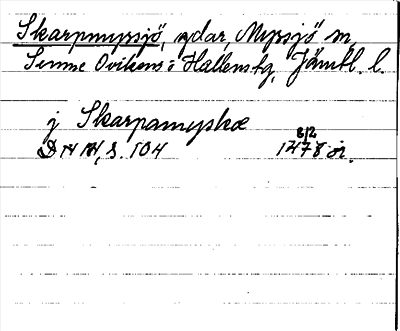 Skarpmyrsjö, ydar, Myrsjö m,
Sunne Ovikens o Hallens tg, Jämtl. l.
j Skarpamyskœ
DN NH, s. 104 8/2 1478 or.